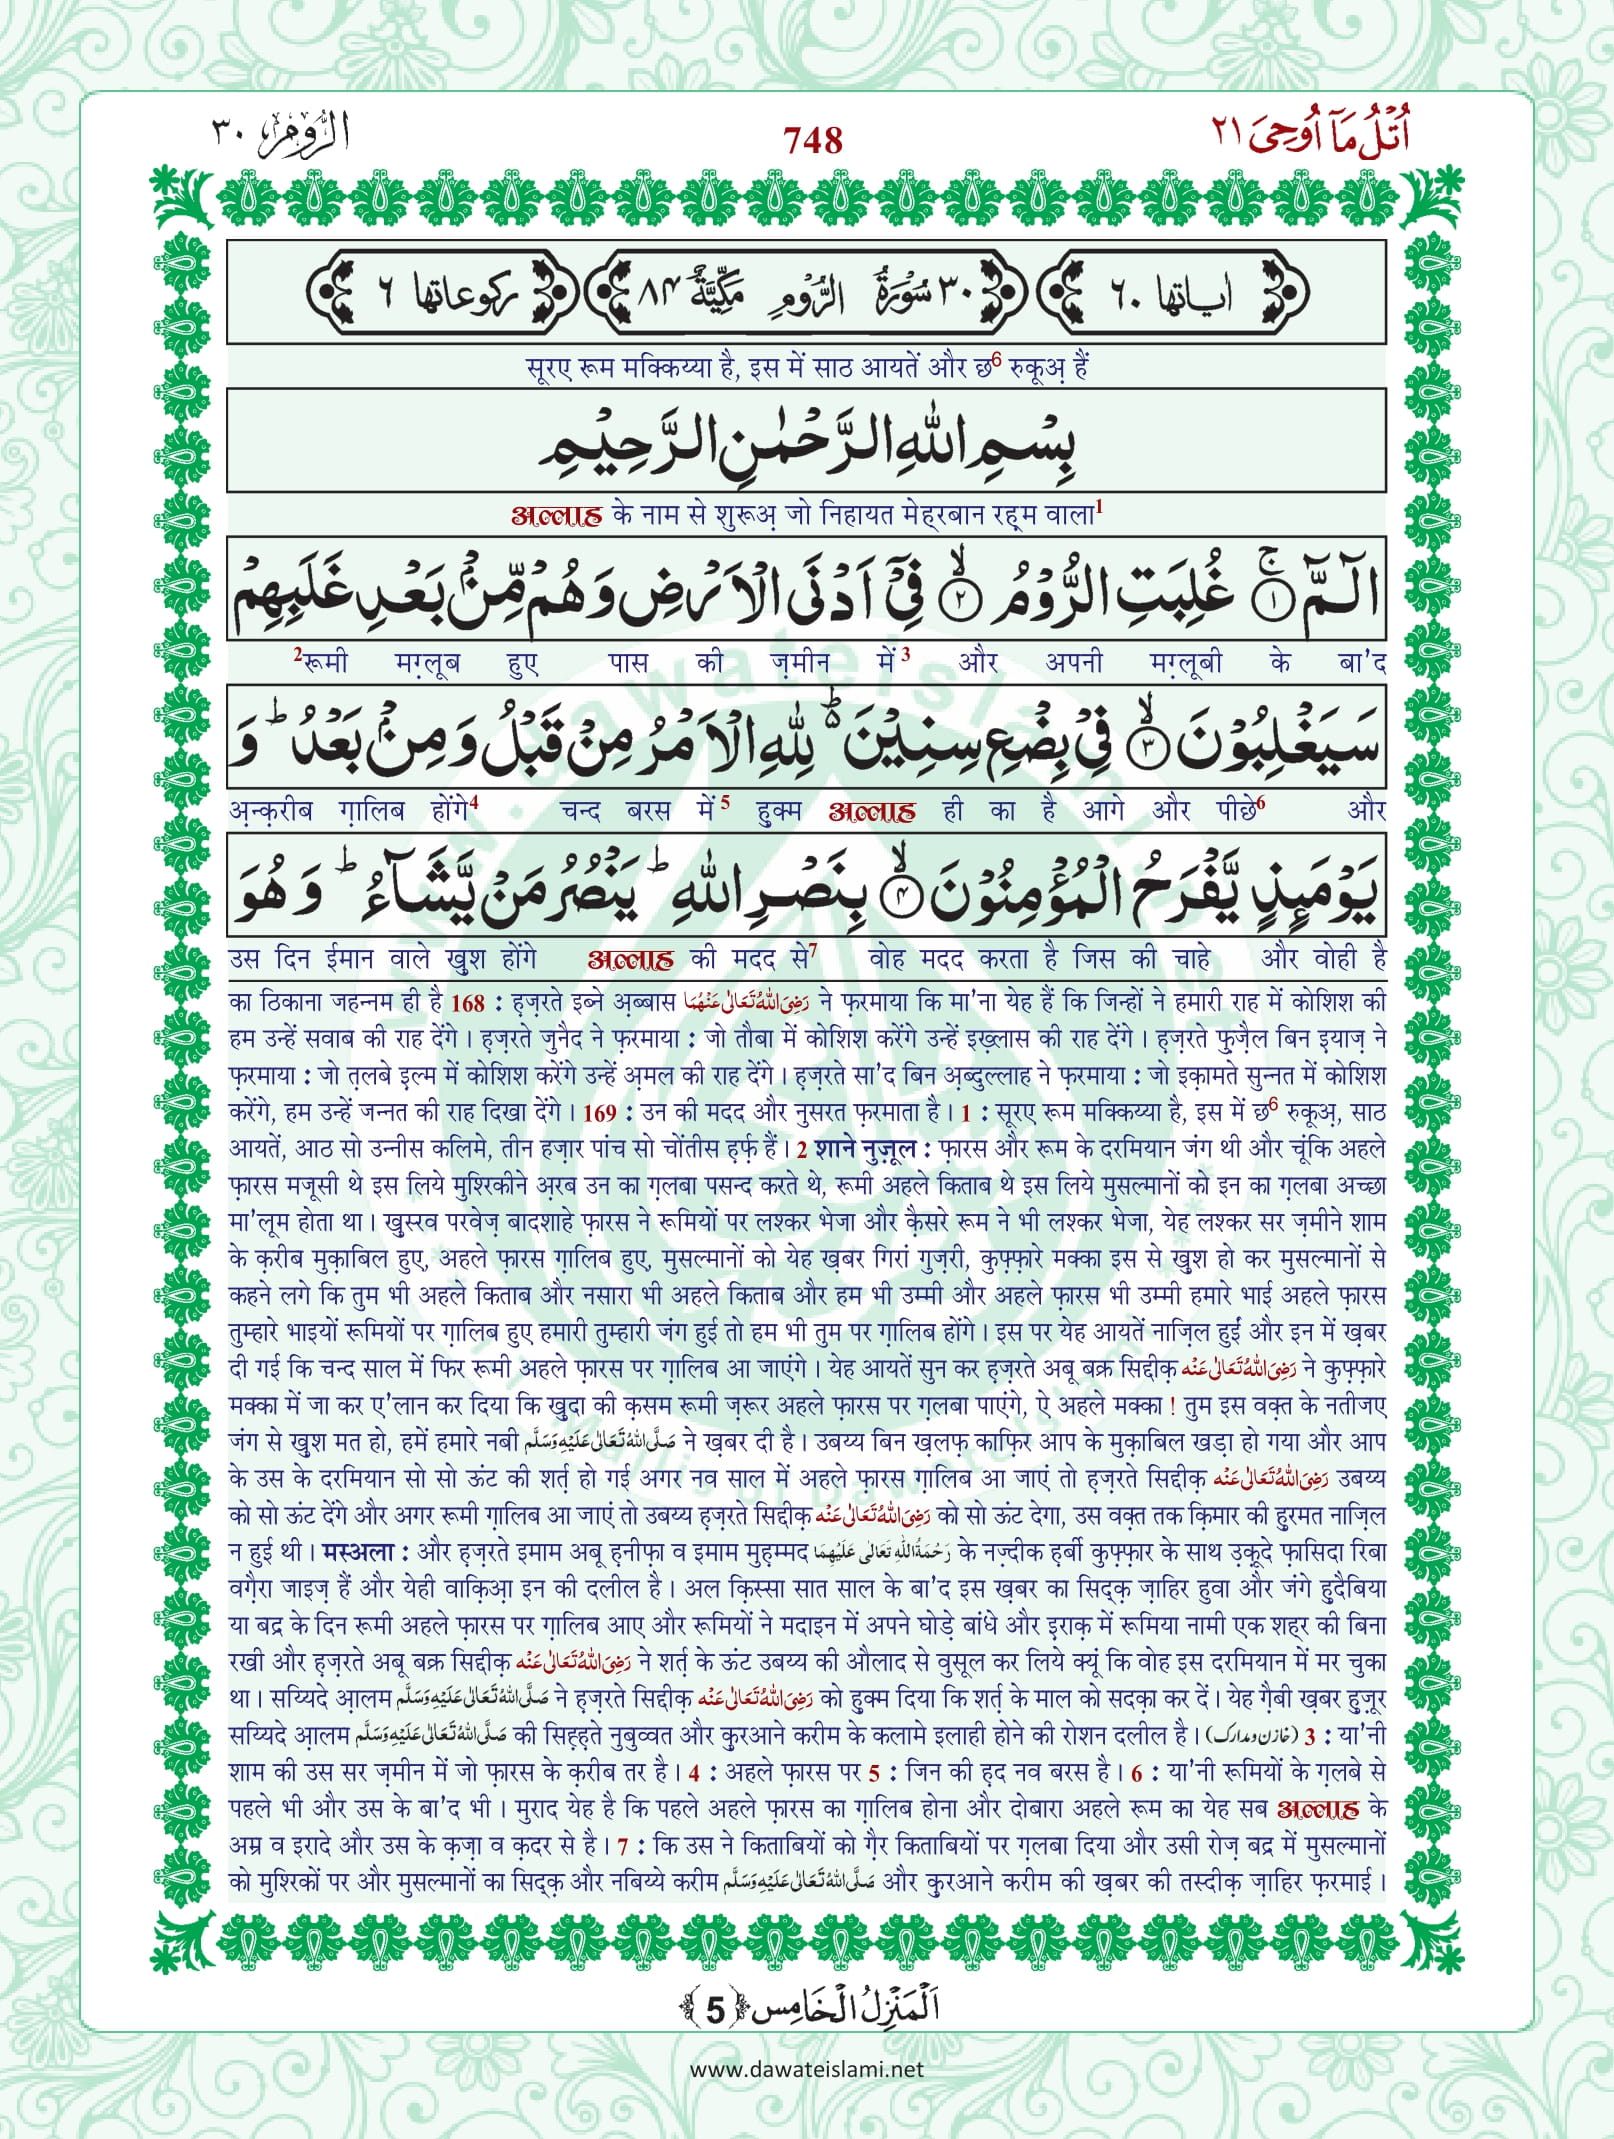 اُتْلُ مَاۤ اُوْحِیَ ٢١ 748 الرُّوْم ٣٠
اٰیاتها ٦٠ ٣٠ سُوْرَةُ الرُّوْمِ مَكِّيَّةٌ ٨٤ ركوعاتها ٦
सूरए रूम मक्किय्या है, इस में साठ आयतें और छ6 रुकूअ़ हैं
بِسْمِ اللّٰهِ الرَّحْمٰنِ الرَّحِیْمِ
अल्लाह के नाम से शुरूअ़ जो निहायत मेह्‌रबान रह्‌म वाला1
الٓمّٓ ۚ﴿١﴾ غُلِبَتِ الرُّوْمُ ۙ﴿٢﴾ فِیْۤ اَدْنَی الْاَرْضِ وَ هُمْ مِّنْۢ بَعْدِ غَلَبِهِمْ
2रूमी मग़्लूब हुए पास की ज़मीन में3 और अपनी मग़्लूबी के बा'द
سَیَغْلِبُوْنَ ۙ﴿٣﴾ فِیْ بِضْعِ سِنِیْنَ ؕ۬ لِلّٰهِ الْاَمْرُ مِنْ قَبْلُ وَ مِنْۢ بَعْدُ ؕ وَ
अ़न्क़रीब ग़ालिब होंगे4 चन्द बरस में5 हुक्म अल्लाह ही का है आगे और पीछे6 और
یَوْمَئِذٍ یَّفْرَحُ الْمُؤْمِنُوْنَ ۙ﴿٤﴾ بِنَصْرِ اللّٰهِ ؕ یَنْصُرُ مَنْ یَّشَآءُ ؕ وَ هُوَ
उस दिन ईमान वाले खुश होंगे अल्लाह की मदद से7 वोह मदद करता है जिस की चाहे और वोही है
का ठिकाना जहन्नम ही है 168 : ह़ज़रते इब्ने अ़ब्बास رَضِیَ اللّٰهُ تَعَالٰی عَنْهُمَا ने फ़रमाया कि मा'ना येह हैं कि जिन्हों ने हमारी राह में कोशिश की
हम उन्हें सवाब की राह देंगे । ह़ज़रते जुनैद ने फ़रमाया : जो तौबा में कोशिश करेंगे उन्हें इख़्लास की राह देंगे । ह़ज़रते फुज़ैल बिन इयाज़ ने
फ़रमाया : जो त़लबे इल्म में कोशिश करेंगे उन्हें अ़मल की राह देंगे । ह़ज़रते सा'द बिन अ़ब्दुल्लाह ने फ़रमाया : जो इक़ामते सुन्नत में कोशिश
करेंगे, हम उन्हें जन्नत की राह दिखा देंगे । 169 : उन की मदद और नुसरत फ़रमाता है । 1 : सूरए रूम मक्किय्या है, इस में छ6 रुकूअ़, साठ
आयतें, आठ सो उन्नीस कलिमे, तीन हज़ार पांच सो चोंतीस ह़र्फ़ हैं । 2 शाने नुज़ूल : फ़ारस और रूम के दरमियान जंग थी और चूंकि अहले
फ़ारस मजूसी थे इस लिये मुश्रिकीने अ़रब उन का ग़लबा पसन्द करते थे, रूमी अहले किताब थे इस लिये मुसल्मानों को इन का ग़लबा अच्छा
मा'लूम होता था । खुस्रव परवेज़ बादशाहे फ़ारस ने रूमियों पर लश्कर भेजा और क़ैसरे रूम ने भी लश्कर भेजा, येह लश्कर सर ज़मीने शाम
के क़रीब मुक़ाबिल हुए, अहले फ़ारस ग़ालिब हुए, मुसल्मानों को येह ख़बर गिरां गुज़री, कुफ़्फ़ारे मक्का इस से खुश हो कर मुसल्मानों से
कहने लगे कि तुम भी अहले किताब और नसारा भी अहले किताब और हम भी उम्मी और अहले फ़ारस भी उम्मी हमारे भाई अहले फ़ारस
तुम्हारे भाइयों रूमियों पर ग़ालिब हुए हमारी तुम्हारी जंग हुई तो हम भी तुम पर ग़ालिब होंगे । इस पर येह आयतें नाज़िल हुईं और इन में ख़बर
दी गई कि चन्द साल में फिर रूमी अहले फ़ारस पर ग़ालिब आ जाएंगे । येह आयतें सुन कर ह़ज़रते अबू बक्र सिद्दीक़ رَضِیَ اللّٰهُ تَعَالٰی عَنْه ने कुफ़्फ़ारे
मक्का में जा कर ए'लान कर दिया कि खुदा की क़सम रूमी ज़रूर अहले फ़ारस पर ग़लबा पाएंगे, ऐ अहले मक्का ! तुम इस वक़्त के नतीजए
जंग से खुश मत हो, हमें हमारे नबी صَلَّی اللّٰهُ تَعَالٰی عَلَیْهِ وَسَلَّم ने ख़बर दी है । उबय्य बिन ख़लफ़ काफ़िर आप के मुक़ाबिल खड़ा हो गया और आप
के उस के दरमियान सो सो ऊंट की शर्त़ हो गई अगर नव साल में अहले फ़ारस ग़ालिब आ जाएं तो ह़ज़रते सिद्दीक़ رَضِیَ اللّٰهُ تَعَالٰی عَنْه उबय्य
को सो ऊंट देंगे और अगर रूमी ग़ालिब आ जाएं तो उबय्य ह़ज़रते सिद्दीक़ رَضِیَ اللّٰهُ تَعَالٰی عَنْه को सो ऊंट देगा, उस वक़्त तक क़िमार की हुरमत नाज़िल
न हुई थी । मस्अला : और ह़ज़रते इमाम अबू ह़नीफ़ा व इमाम मुह़म्मद رَحْمَةُ اللّٰهِ تَعَالٰی عَلَیْهِمَا के नज़्दीक ह़र्बी कुफ़्फ़ार के साथ उ़क़ूदे फ़ासिदा रिबा
वग़ैरा जाइज़ हैं और येही वाक़िआ़ इन की दलील है । अल क़िस्सा सात साल के बा'द इस ख़बर का सिद्क़ ज़ाहिर हुवा और जंगे हुदैबिया
या बद्र के दिन रूमी अहले फ़ारस पर ग़ालिब आए और रूमियों ने मदाइन में अपने घोड़े बांधे और इराक़ में रूमिया नामी एक शहर की बिना
रखी और ह़ज़रते अबू बक्र सिद्दीक़ رَضِیَ اللّٰهُ تَعَالٰی عَنْه ने शर्त़ के ऊंट उबय्य की औलाद से वुसूल कर लिये क्यूं कि वोह इस दरमियान में मर चुका
था । सय्यिदे आ़लम صَلَّی اللّٰهُ تَعَالٰی عَلَیْهِ وَسَلَّم ने ह़ज़रते सिद्दीक़ رَضِیَ اللّٰهُ تَعَالٰی عَنْه को हुक्म दिया कि शर्त़ के माल को सदक़ा कर दें । येह ग़ैबी ख़बर हुज़ूर
सय्यिदे आ़लम صَلَّی اللّٰهُ تَعَالٰی عَلَیْهِ وَسَلَّم की सिह़्ह़ते नुबुव्वत और कुरआने करीम के कलामे इलाही होने की रोशन दलील है । (خازن ومدارک) 3 : या'नी
शाम की उस सर ज़मीन में जो फ़ारस के क़रीब तर है । 4 : अहले फ़ारस पर 5 : जिन की ह़द नव बरस है । 6 : या'नी रूमियों के ग़लबे से
पहले भी और उस के बा'द भी । मुराद येह है कि पहले अहले फ़ारस का ग़ालिब होना और दोबारा अहले रूम का येह सब अल्लाह के
अम्र व इरादे और उस के क़ज़ा व क़दर से है । 7 : कि उस ने किताबियों को ग़ैर किताबियों पर ग़लबा दिया और उसी रोज़ बद्र में मुसल्मानों
को मुश्रिकों पर और मुसल्मानों का सिद्क़ और नबिय्ये करीम صَلَّی اللّٰهُ تَعَالٰی عَلَیْهِ وَسَلَّم और कुरआने करीम की ख़बर की तस्दीक़ ज़ाहिर फ़रमाई ।
اَلْمَنْزِلُ الْخَامِس ﴿5﴾
www.dawateislami.net